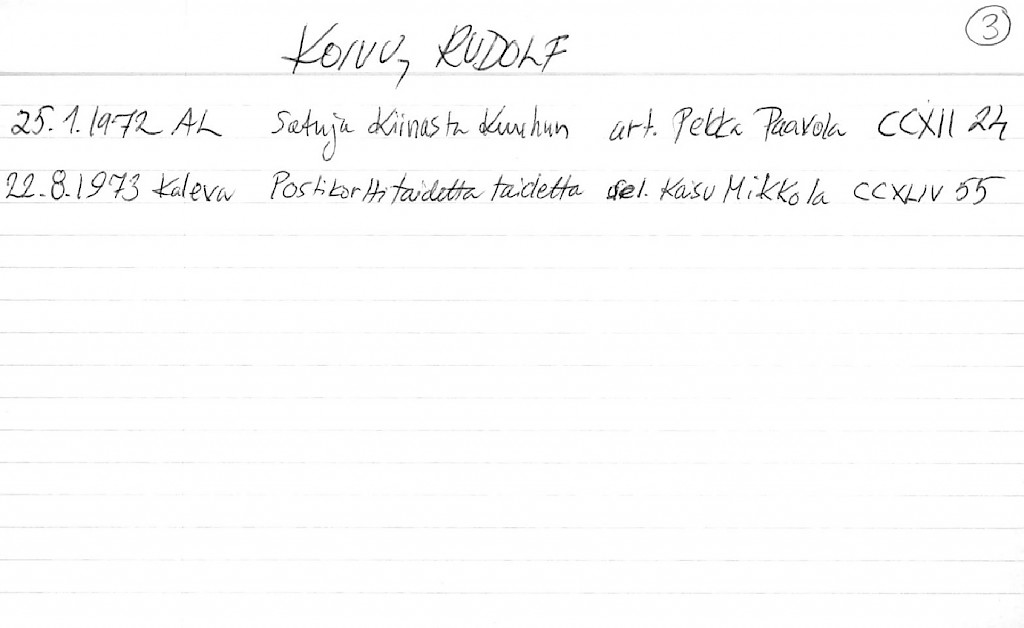 3
KOIVU, RUDOLF
25.1.1972 AL Satuja Kiinasta Kuuhun art. Pekka Paavola CCXII 24
22.8.1973 Kaleva Postikorttitaidetta taidetta sel. Kaisu Mikkola CCXLIV 55